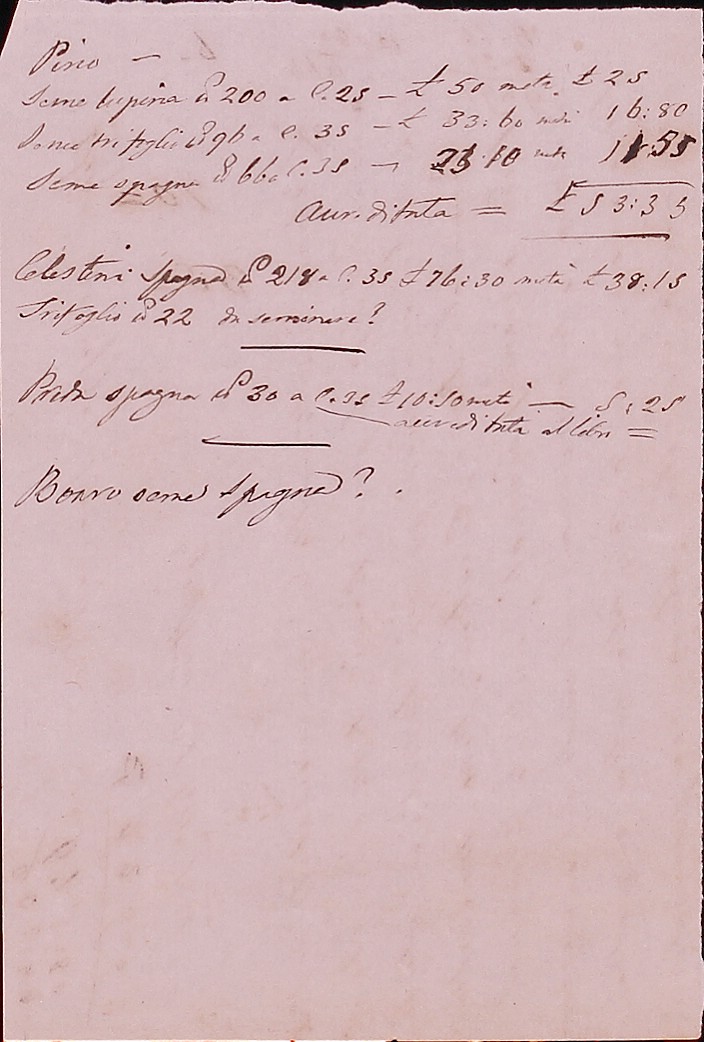 Pirio —
Seme lupina 200 a C. 25 — £ 50 metà £ 25
Seme trifoglio 96 a C. 35 — £ 33:60 metà 16:80
Seme spagna 66 a C. 35 — 23:10 metà 11:55
accreditata = £ 53:35
Celestini Spagna 218 a C. 35 £ 76:30 metà £ 38:15
Trifoglio 22 da seminare?
Preda spagna 30 a C. 35 £ 10:50 metà — 5:25
accreditata al libro =
seme Spagna?